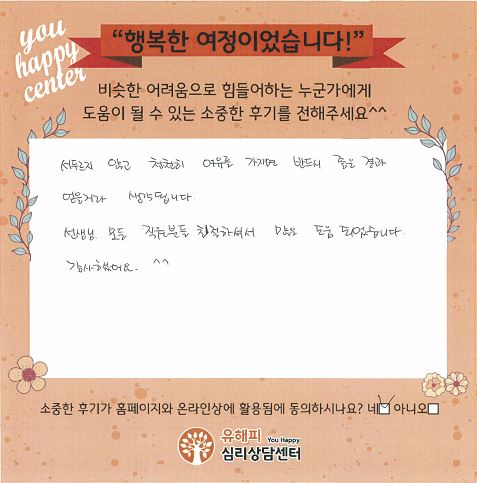 you
happy
center
“행복한 여정이었습니다!”
비슷한 어려움으로 힘들어하는 누군가에게
도움이 될 수 있는 소중한 후기를 전해주세요^^
서두르지 않고 천천히 여유를 가지면 반드시 좋은 결과
얻을거라 생각됩니다.
선생님 모든 직원분들 친절하셔서 많은 도움 되었습니다.
감사했어요. ^^
소중한 후기가 홈페이지와 온라인상에 활용됨에 동의하시나요? 네☑ 아니오☐
유해피 You Happy
심리상담센터